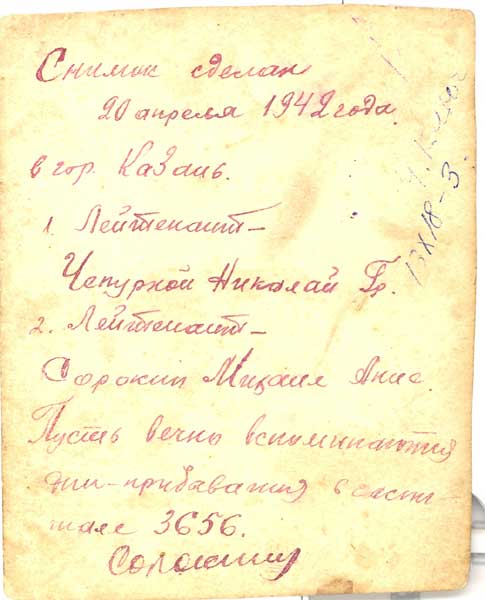 Снимок сделан
20 апреля 1942 года.
в гор. Казань.
1. Лейтенант-
Чепурной Николай Г.
2. Лейтенант-
Сорокин Михаил Анис.
Пусть вечно вспоминаются
дни-прибавания в госпи-
тале 3656.
Сорокин
13Х18-3.